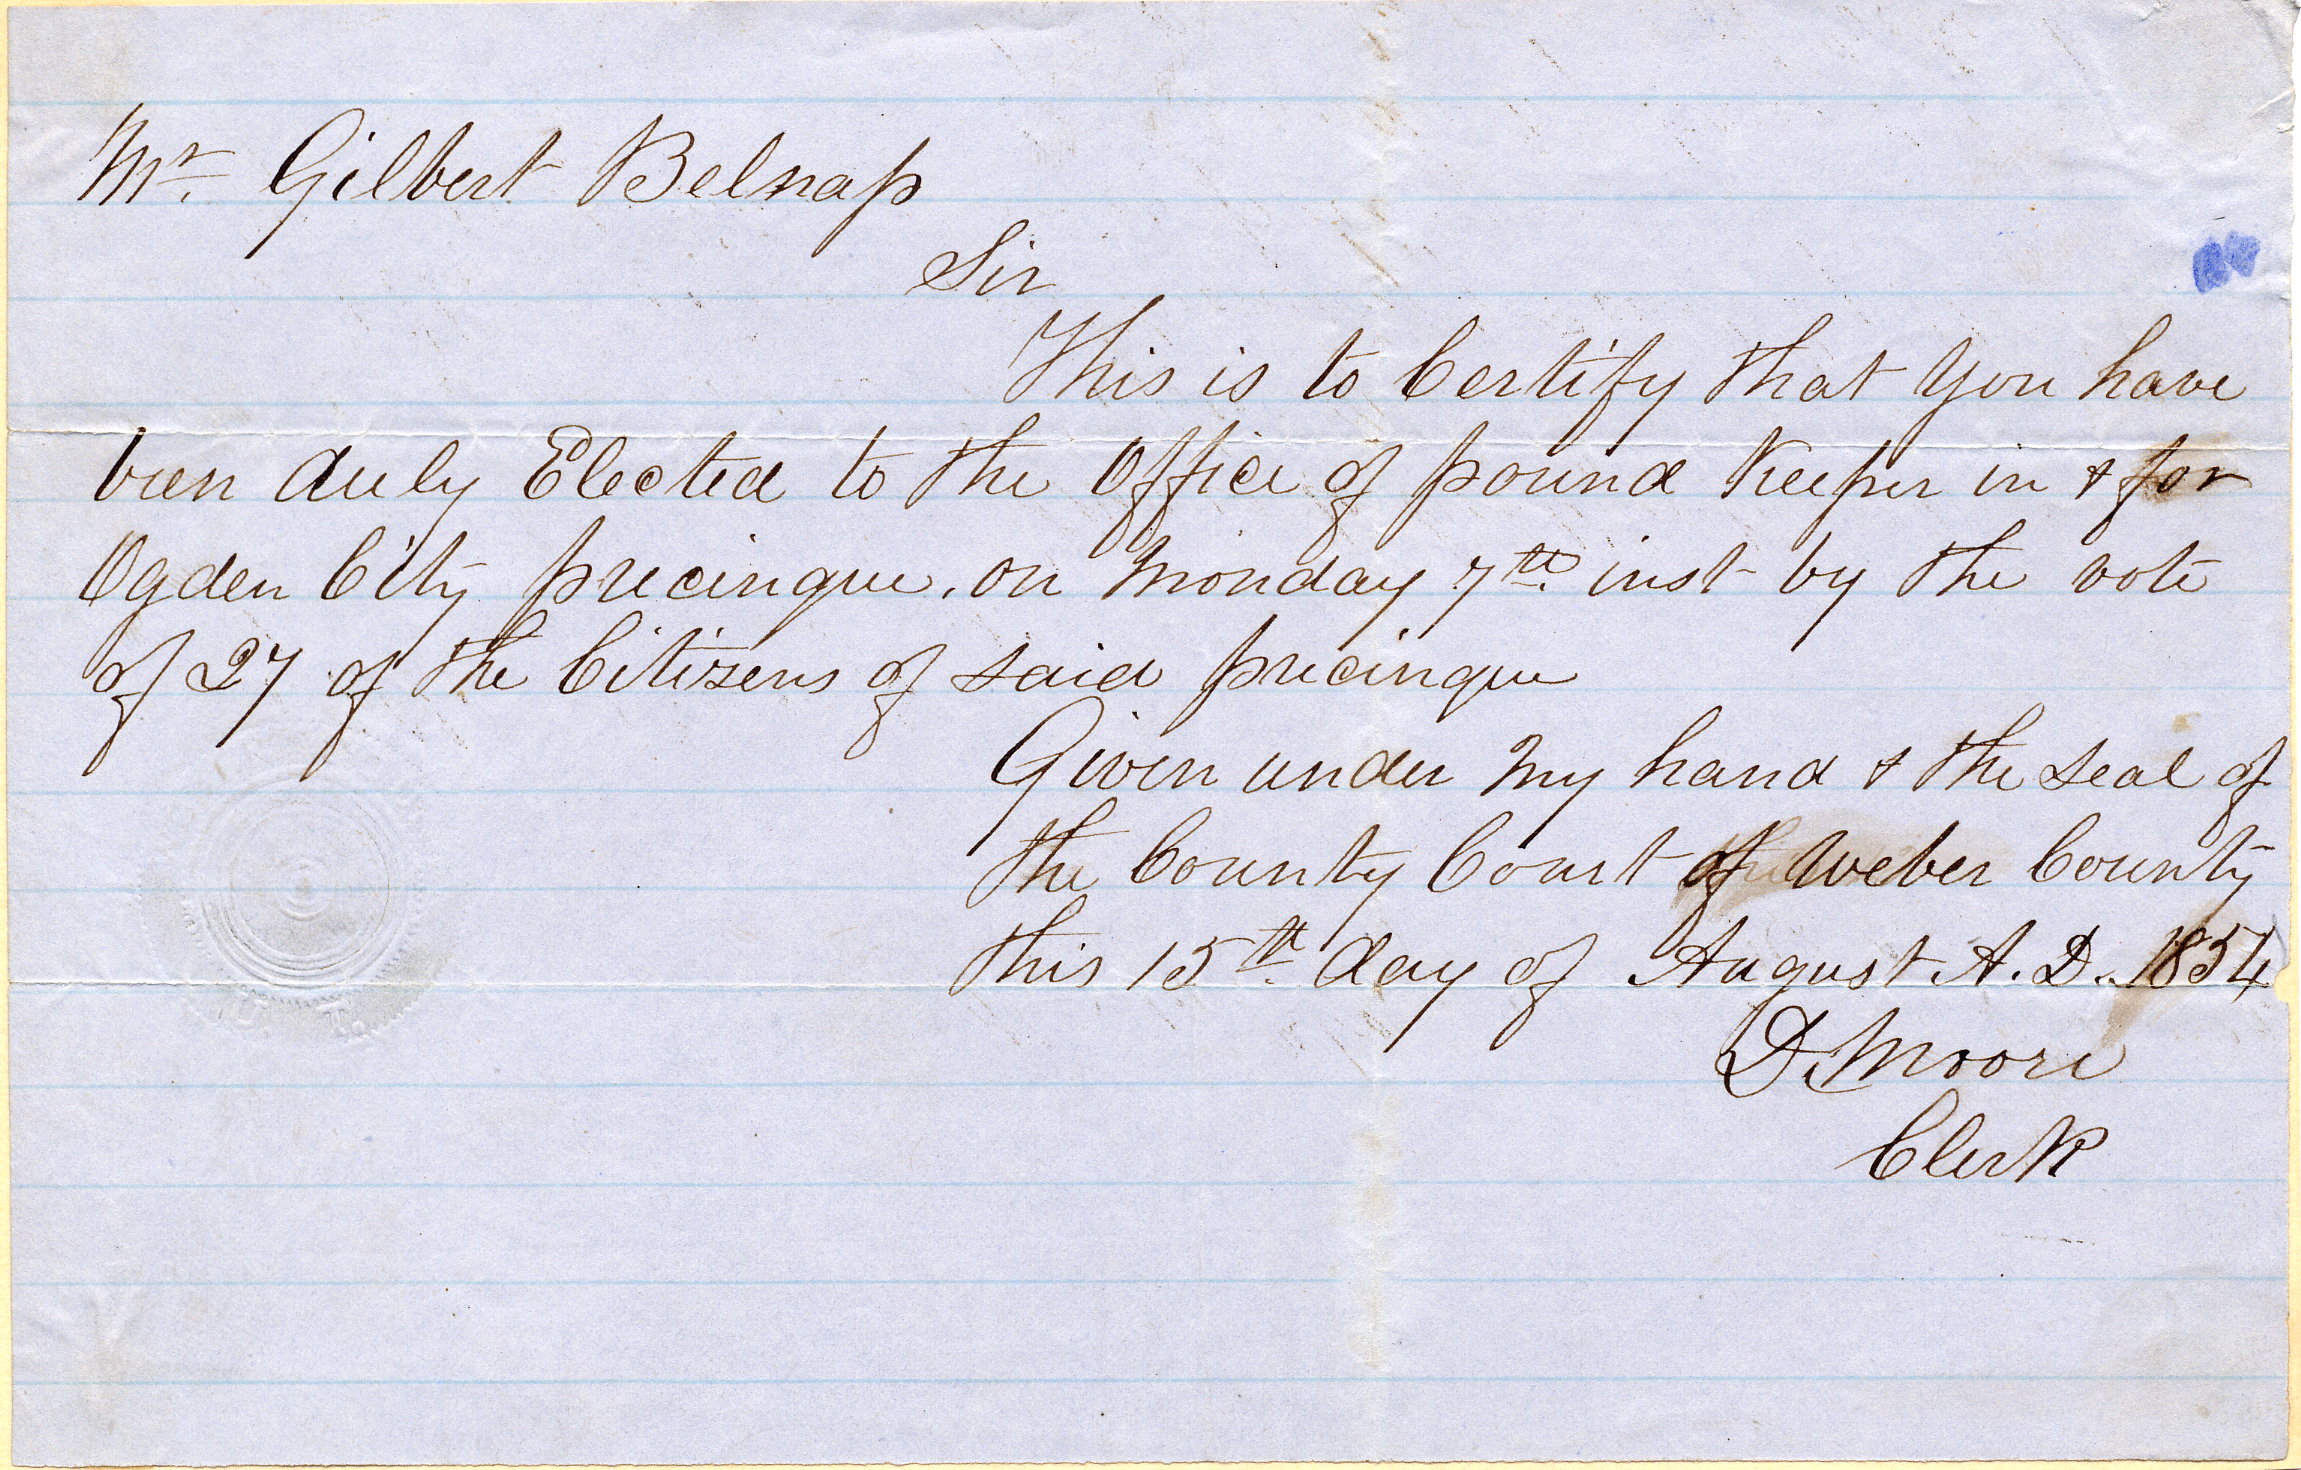 Mr. Gilbert Belnap
Sir
This is to Certify that you have
been duly Elected to the Office of pound Keeper in & for
Ogden City precinque, on Monday 7th. inst by the vote
of 27 of the Citizens of said precinque
Given under my hand & the seal of
the County Court of Weber County
this 15th. day of August A. D. 1854
D. Moore
Clerk
U. T.